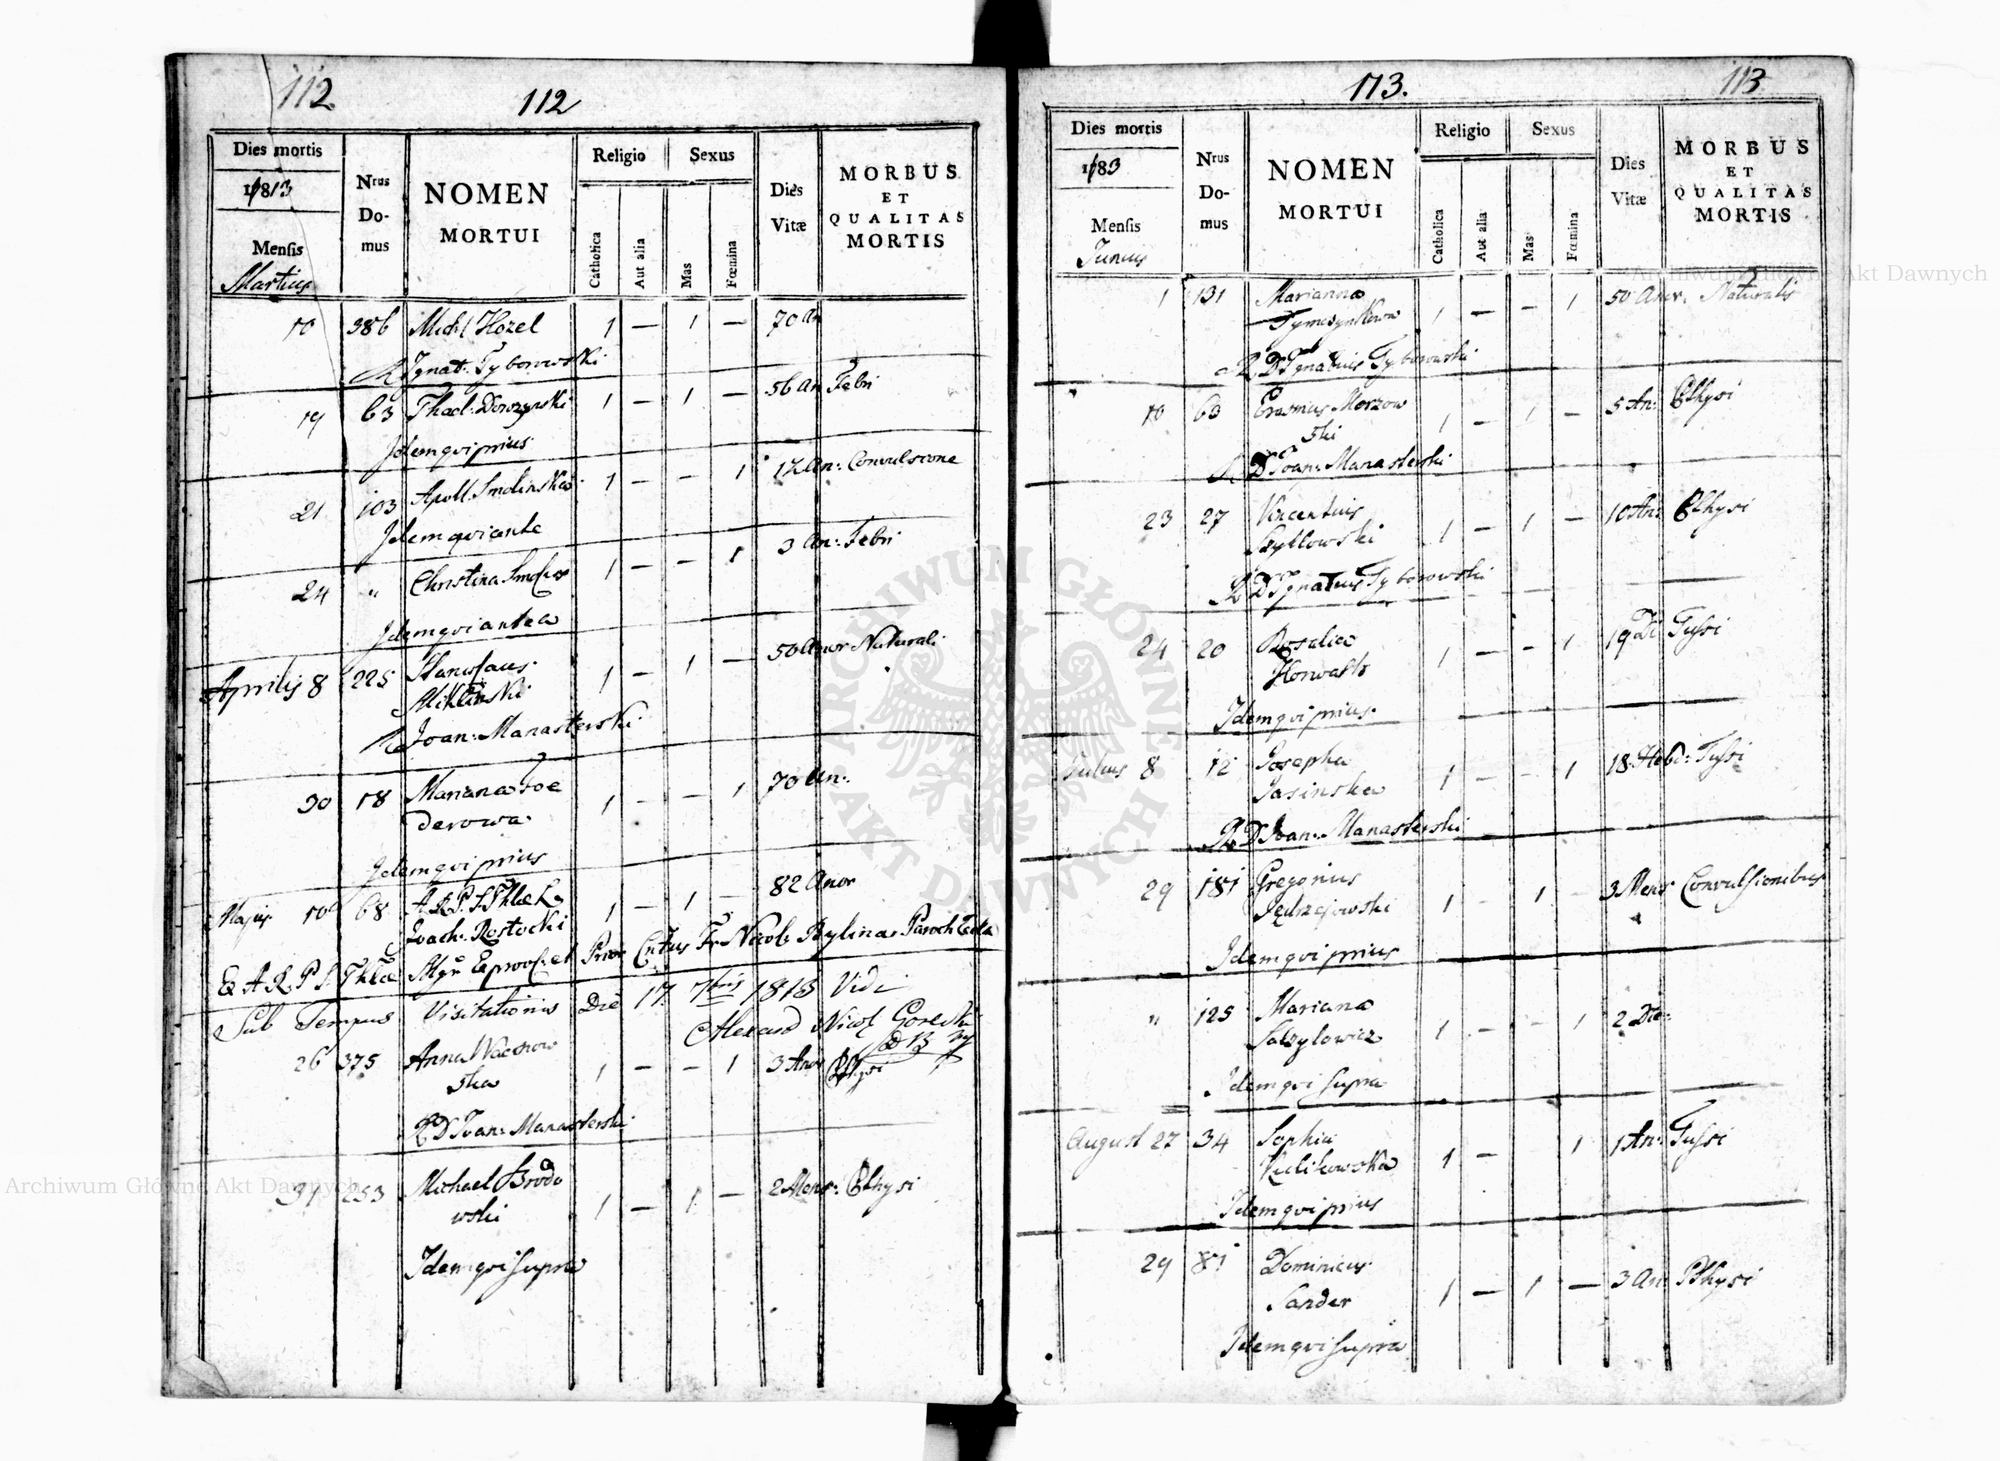 112.
112
Dies mortis
1813
Mensis
Martius
Nrus
Do-
mus
NOMEN
MORTUI
Religio
Catholica
Aut alia
Sexus
Mas
Fœmina
Dies
Vitæ
MORBUS
ET
QUALITAS
MORTIS
10 386 Michl Hozel 1 — 1 — 70 An
R Ignat: Tyborowski
19 63 Thad: 1 — 1 — 56 An Febri
Idem qvi prius
21 103 Apoll. Smolinska 1 — — 1 17 An: Convulsione
Idem qvi ante
24 " Christina 1 — — 1 3 An: Febri
Idem qvi antea
Aprilis 8 225 Stanislaus 1 — 1 — 50 Anor Naturali
Miklinski
R Joan: Manasterski
30 18 Mariana Foe 1 — — 1 70 An:
derowa
Idem qvi prius
Majus 10 68 A R P S Thlae 1 — 1 — 82 Anor
Joach: Rostocki
Mgr Exprov: et Prior Fr Nicol: Bylina Paroch
Sub Tempus Visitationis Die 17 7bris 1813 Vidi
Alexand Nicol Gorecki
26 375 Anna 1 — — 1 3 Anor Pthysi
ska
R D Joan: Manasterski
31 253 Michael Brodo 1 — 1 — 2 Mens: Pthysi
wski
Idem qvi supra
113.
113
Dies mortis
183
Mensis
Junius
Nrus
Do-
mus
NOMEN
MORTUI
Religio
Catholica
Aut alia
Sexus
Mas
Fœmina
Dies
Vitæ
MORBUS
ET
QUALITAS
MORTIS
1 131 Marianna 1 — — 1 50 Anor: Naturalis
R D Ignatius Tyborowski
10 63 Erasmus Morzow 1 — 1 — 5 An: Pthysi
ski
R D Joan: Manasterski
23 27 Vincentius 1 — 1 — 10 An: Pthysi
Szyttowski
R D Ignatius Tyborowski
24 20 Rosalia 1 — — 1 19 Di Tussi
Horwath
Idem qvi prius
Julius 8 12 Josepha 1 — — 1 18 Hebd: Tussi
Jasinska
R D Joan: Manasterski
29 181 Gregorius 1 — 1 — 3 Mens Convulsionibus
Jędrzejowski
Idem qvi prius
" 125 Mariana 1 — — 1 2 Die:
Idem qvi supra
August 27 34 Sophia 1 — 1 1 An: Tussi
Kulikowska
Idem qvi prius
29 81 Dominicus 1 — 1 — 3 An: Pthysi
Sander
Idem qvi supra
Archiwum Główne Akt Dawnych
Archiwum Główne Akt Dawnych
ARCHIWUM GŁÓWNE AKT DAWNYCH